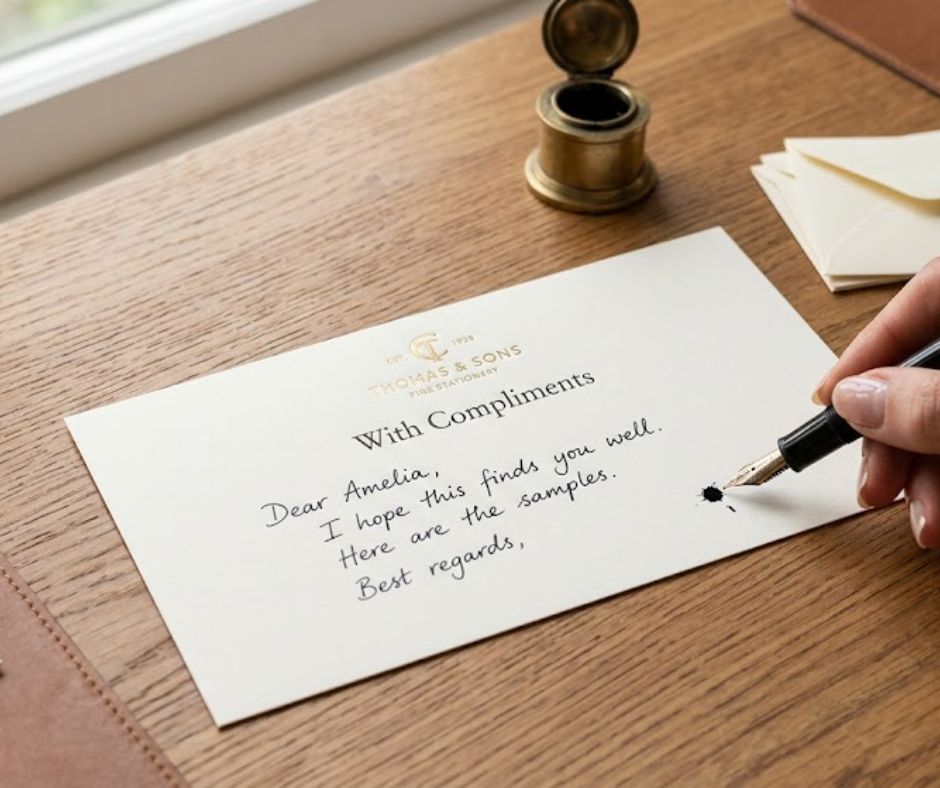 EST. 1928
THOMAS & SONS
FINE STATIONERY
With Compliments
Dear Amelia,
I hope this finds you well.
Here are the samples.
Best regards,